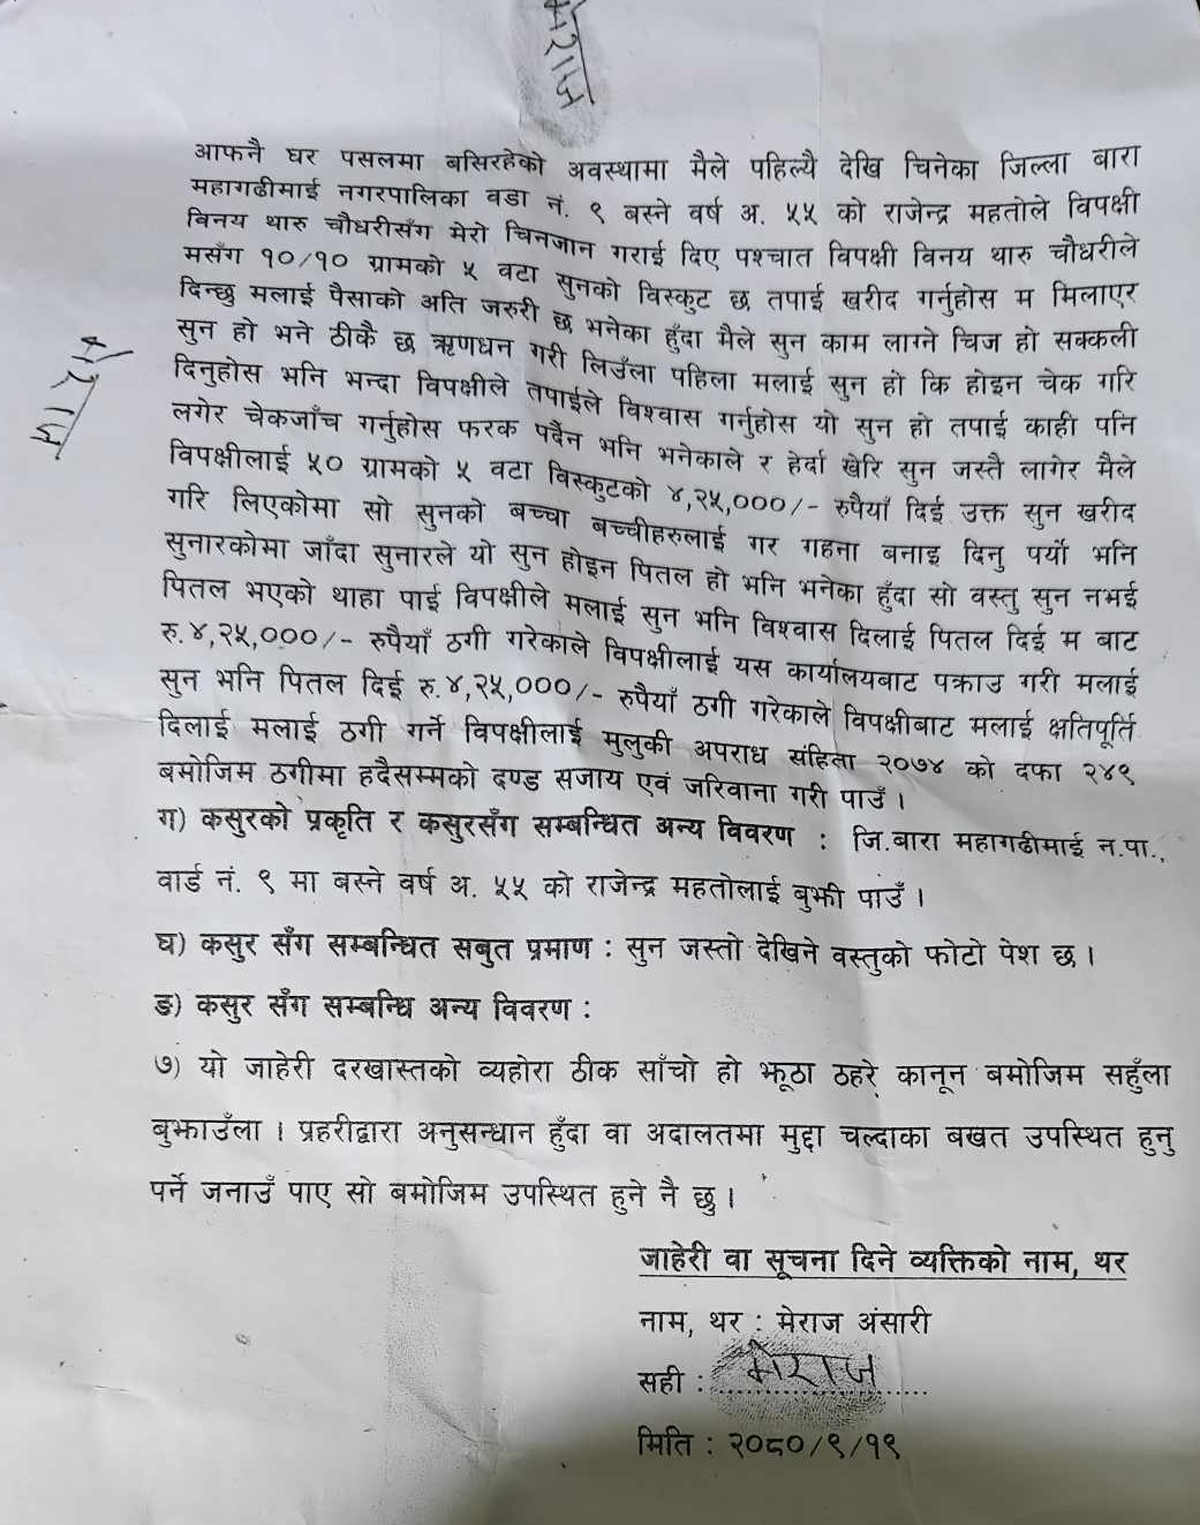 मेराज
आफनै घर पसलमा बसिरहेको अवस्थामा मैले पहिल्यै देखि चिनेका जिल्ला बारा
महागढीमाई नगरपालिका वडा नं. ९ बस्ने वर्ष अ. ५५ को राजेन्द्र महतोले विपक्षी
विनय थारु चौधरीसँग मेरो चिनजान गराई दिए पश्चात विपक्षी विनय थारु चौधरीले
मसँग १०/१० ग्रामको ५ वटा सुनको विस्कुट छ तपाई खरीद गर्नुहोस म मिलाएर
दिन्छु मलाई पैसाको अति जरुरी छ भनेका हुँदा मैले सुन काम लाग्ने चिज हो सक्कली
सुन हो भने ठीकै छ ऋणधन गरी लिउँला पहिला मलाई सुन हो कि होइन चेक गरि
दिनुहोस भनि भन्दा विपक्षीले तपाईले विश्वास गर्नुहोस यो सुन हो तपाई काही पनि
लगेर चेकजाँच गर्नुहोस फरक पर्दैन भनि भनेकाले र हेर्दा खेरि सुन जस्तै लागेर मैले
विपक्षीलाई ५० ग्रामको ५ वटा विस्कुटको ४,२५,०००/- रुपैयाँ दिई उक्त सुन खरीद
गरि लिएकोमा सो सुनको बच्चा बच्चीहरुलाई गर गहना बनाइ दिनु पर्यो भनि
सुनारकोमा जाँदा सुनारले यो सुन होइन पितल हो भनि भनेका हुँदा सो वस्तु सुन नभई
पितल भएको थाहा पाई विपक्षीले मलाई सुन भनि विश्वास दिलाई पितल दिई म बाट
रु.४,२५,०००/- रुपैयाँ ठगी गरेकाले विपक्षीलाई यस कार्यालयबाट पक्राउ गरी मलाई
सुन भनि पितल दिई रु.४,२५,०००/- रुपैयाँ ठगी गरेकाले विपक्षीबाट मलाई क्षतिपूर्ति
दिलाई मलाई ठगी गर्ने विपक्षीलाई मुलुकी अपराध संहिता २०७४ को दफा २४९
बमोजिम ठगीमा हदैसम्मको दण्ड सजाय एवं जरिवाना गरी पाउँ ।
ग) कसुरको प्रकृति र कसुरसँग सम्बन्धित अन्य विवरण : जि.बारा महागढीमाई न.पा.,
वार्ड नं. ९ मा बस्ने वर्ष अ. ५५ को राजेन्द्र महतोलाई बुझी पाउँ ।
घ) कसुर सँग सम्बन्धित सबुत प्रमाण : सुन जस्तो देखिने वस्तुको फोटो पेश छ ।
ङ) कसुर सँग सम्बन्धि अन्य विवरण :
७) यो जाहेरी दरखास्तको व्यहोरा ठीक साँचो हो झूठा ठहरे कानून बमोजिम सहुँला
बुझाउँला । प्रहरीद्वारा अनुसन्धान हुँदा वा अदालतमा मुद्दा चल्दाका बखत उपस्थित हुनु
पर्ने जनाउँ पाए सो बमोजिम उपस्थित हुने नै छु ।
जाहेरी वा सूचना दिने व्यक्तिको नाम, थर
नाम, थर : मेराज अंसारी
सही : मेराज
मिति : २०८०/९/१९
मेराज